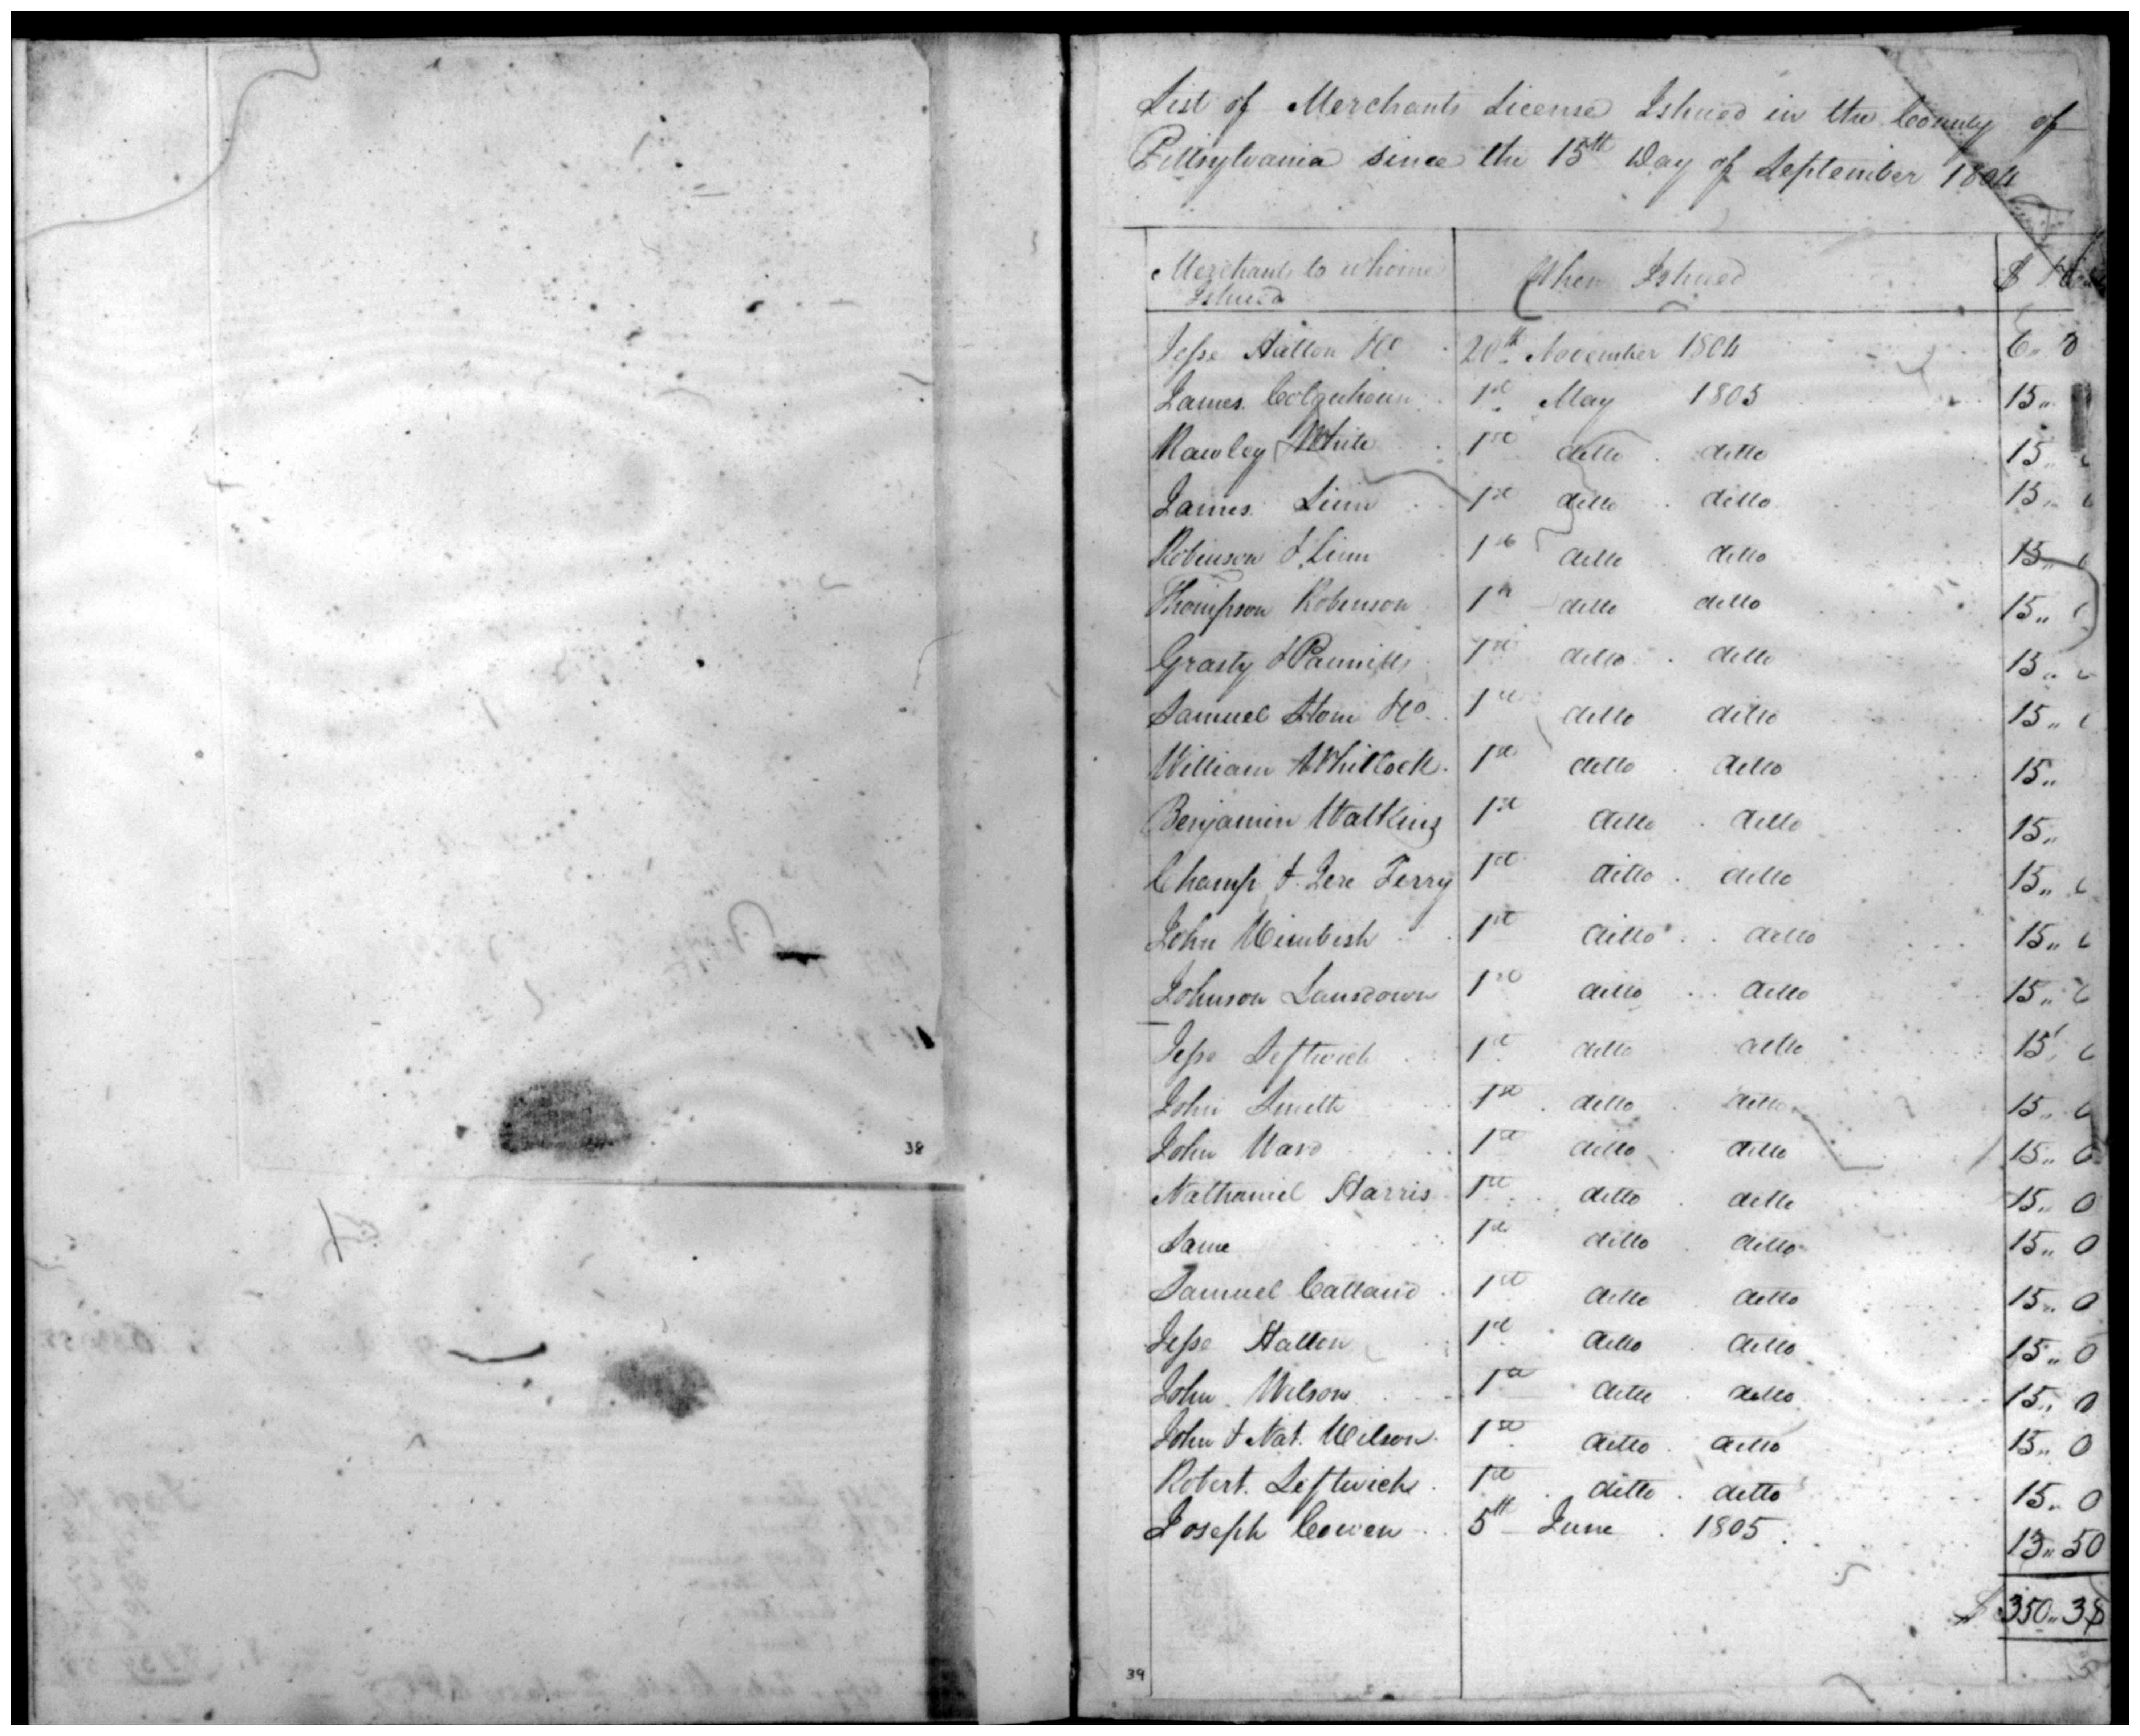 38
List of Merchants License Ishued in the County of
Pittsylvania since the 15th Day of September 1804
Merchants to whome Ishued When Ishued $
Jesse Hatton & Co 20th November 1804 6..
James Colquhoun 1st May 1805 15..
Rawley White 1st ditto ditto 15..
James Linn 1st ditto ditto 15..
Robinson & Linn 1st ditto ditto 15..
Thompson Robinson 1st ditto ditto 15..
Grasty & Pannills 1st ditto ditto 15..
Samuel Stone & Co 1st ditto ditto 15..
William Whitlock 1st ditto ditto 15..
Benjamin Watkins 1st ditto ditto 15..
Champ & Jere Terry 1st ditto ditto 15..
John Wimbish 1st ditto ditto 15..
Johnson Lansdown 1st ditto ditto 15..
Jesse Leftwich 1st ditto ditto 15
John Smith 1st ditto ditto 15..
John Ward 1st ditto ditto 15.. 0
Nathaniel Harris 1st ditto ditto 15.. 0
Same 1st ditto ditto 15.. 0
Samuel Calland 1st ditto ditto 15.. 0
Jesse Hatton 1st ditto ditto 15.. 0
John Wilson 1st ditto ditto 15.. 0
John & Nat. Wilson 1st ditto ditto 15.. 0
Robert Leftwich 1st ditto ditto 15.. 0
Joseph Cowen 5th June 1805 13.. 50
$ 350.. 38
39